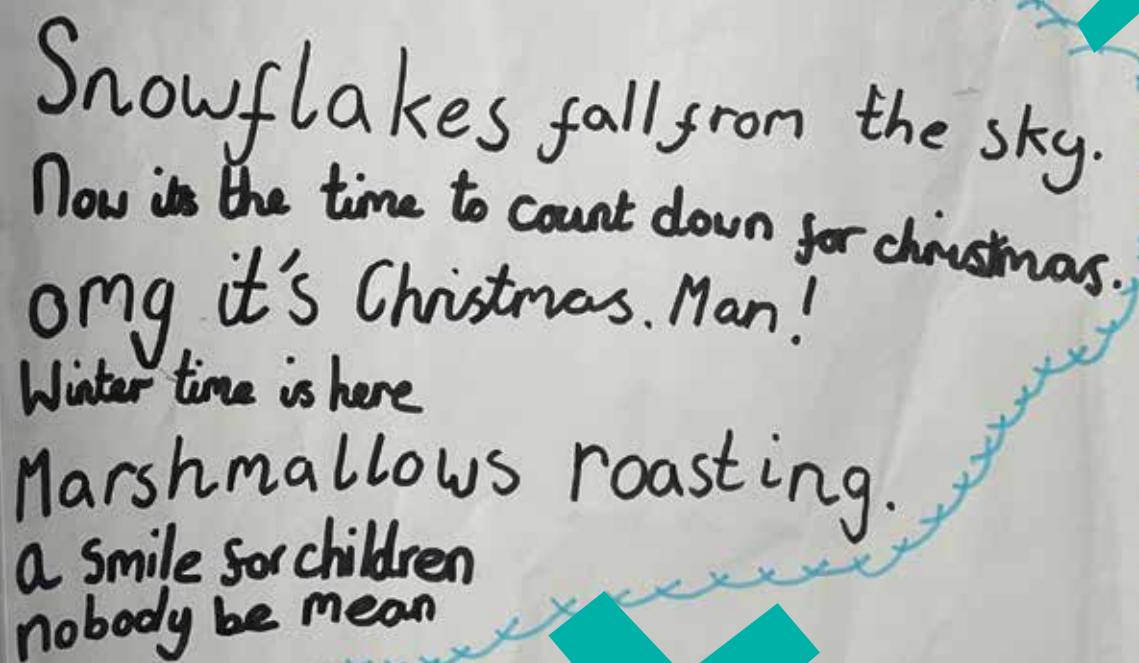 Snowflakes fall from the sky.
Now its the time to count down for christmas.
omg it's Christmas. Man!
Winter time is here
Marshmallows roasting.
a smile for children
nobody be mean